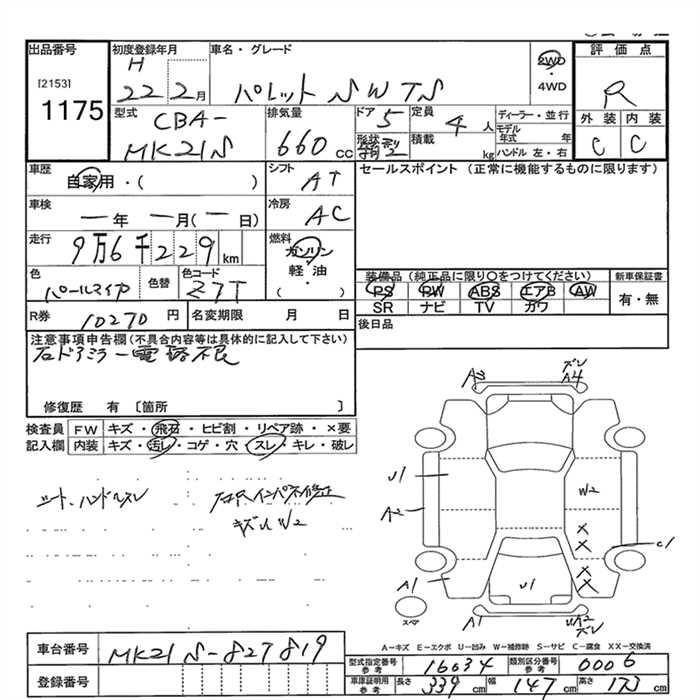 出品番号
[2153]
1175
初度登録年月
H
22 2月
車名・グレード
パレット SW TS
2WD
・
4WD
評価点
R
外装 内装
C C
型式
CBA-
MK21S
排気量
660 cc
ドア 5
形状
定員 4 人
積載 kg
ディーラー・並行
モデル
年式 年
ハンドル 左・右
車歴
自家用・( )
シフト
AT
セールスポイント (正常に機能するものに限ります)
車検
ー年 ー月(ー日)
冷房
AC
走行
9万6千229 km
燃料
ガソリン
・
軽・油
・
( )
色
パールマイカ
色替
色コード
Z7T
装備品 (純正品に限り○をつけてください)
PS PW ABS エアB AW
SR ナビ TV カワ
新車保証書
有・無
R券 10270 円
名変期限 月 日
後日品
注意事項申告欄 (不具合内容等は具体的に記入して下さい)
右ドアミラー電格不良
修復歴 有 [箇所 ]
検査員
記入欄
FW キズ・飛石・ヒビ割・リペア跡・×要
内装 キズ・汚レ・コゲ・穴・スレ・キレ・破レ
シート、ハンドルスレ
キズ W2
A3
ズレ
A4
U1
A2
W2
C1
A1
U1
スペア
A1
UA2
ズレ
A−キズ E−エクボ U−凹み W−補修跡 S−サビ C−腐食 XX−交換済
車台番号
MK21S-827819
登録番号
型式指定番号
参考
16034
類別区分番号
参考
0006
車庫証明用
参考
長さ 339 cm
幅 147 cm
高さ 173 cm